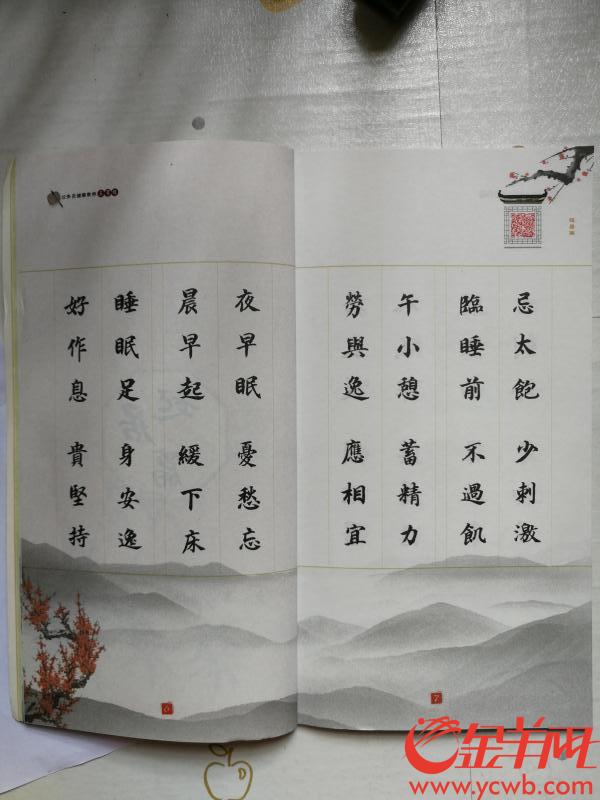 夜早眠 憂愁忘
晨早起 緩下床
睡眠足 身安逸
好作息 貴堅持
6
忌太飽 少刺激
臨睡前 不過飢
午小憩 蓄精力
勞與逸 應相宜
7
金羊网
www.ycwb.com